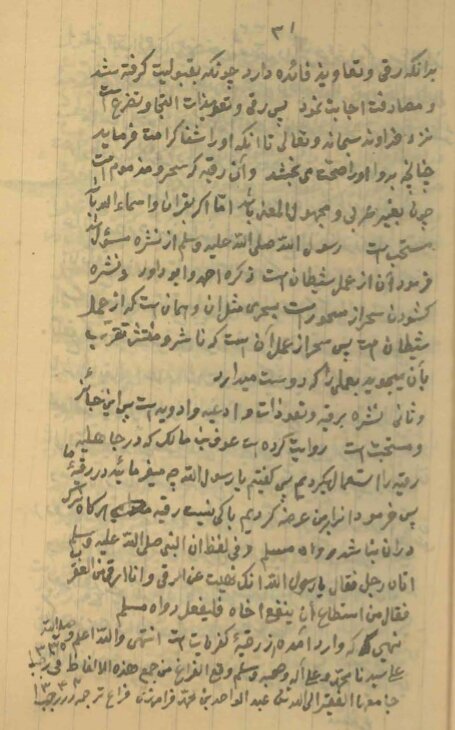 ٣١
بدانکه رقی و تعاویذ فائده دارد چونکه بقبولیت گرفته شد
و مصادفت اجابت نمود پس رقی و تعویذات التجا و تضرع است
نزد خداوند سبحانه و تعالی تا آنکه او را شفا کرامت فرماید
چنانچه بدوا او را صحت می بخشد و آن رقیه که سحر و مذموم است
چون بغیر عربی و مجهول المعنی باشد اما اگر بقرآن و اسماء الله باشد
مستحب است رسول الله صلی الله علیه وسلم از نشره مسؤل شد
فرمود آن از عمل شیطان است ذکره احمد و ابو داود و نشره
کشودن سحر از مسحور است بسحری مثل آن و همان است که از عمل
شیطان است پس سحر از عمل آن است که ناشر و منتشر تقرب
بآن میجوید بعملی را که دوست میدارد
و ثانی نشره برقیه و تعوذات و ادعیه و ادویه است پس این جائز
و مستحب است روایت کرده است عوف بن مالک که در جاهلیه ما
رقیه را استعمال میکردیم پس گفتیم یا رسول الله چه میفرمائید در رقیه
پس فرمود آنرا بمن عرضه کردیم باکی نیست رقیه هرکاه شرک
در آن نباشد رواه مسلم و فی لفظ ان النبی صلی الله علیه وسلم
اتاه رجل فقال یا رسول الله انک نهیت عن الرقی و انا ارقی من العقرب
فقال من استطاع أن ینفع اخاه فلیفعل رواه مسلم
نهیی که وارد آمده از رقیهٔ کفریات است انتهی والله اعلم و صلی الله
علی سیدنا محمد و علی آله و صحبه وسلم وقع الفراغ من جمع هذه الالفاظ فی رجب
جامعها الفقیر الی الله عبد الواحد بن محمد فراغ ترجمه در رجب